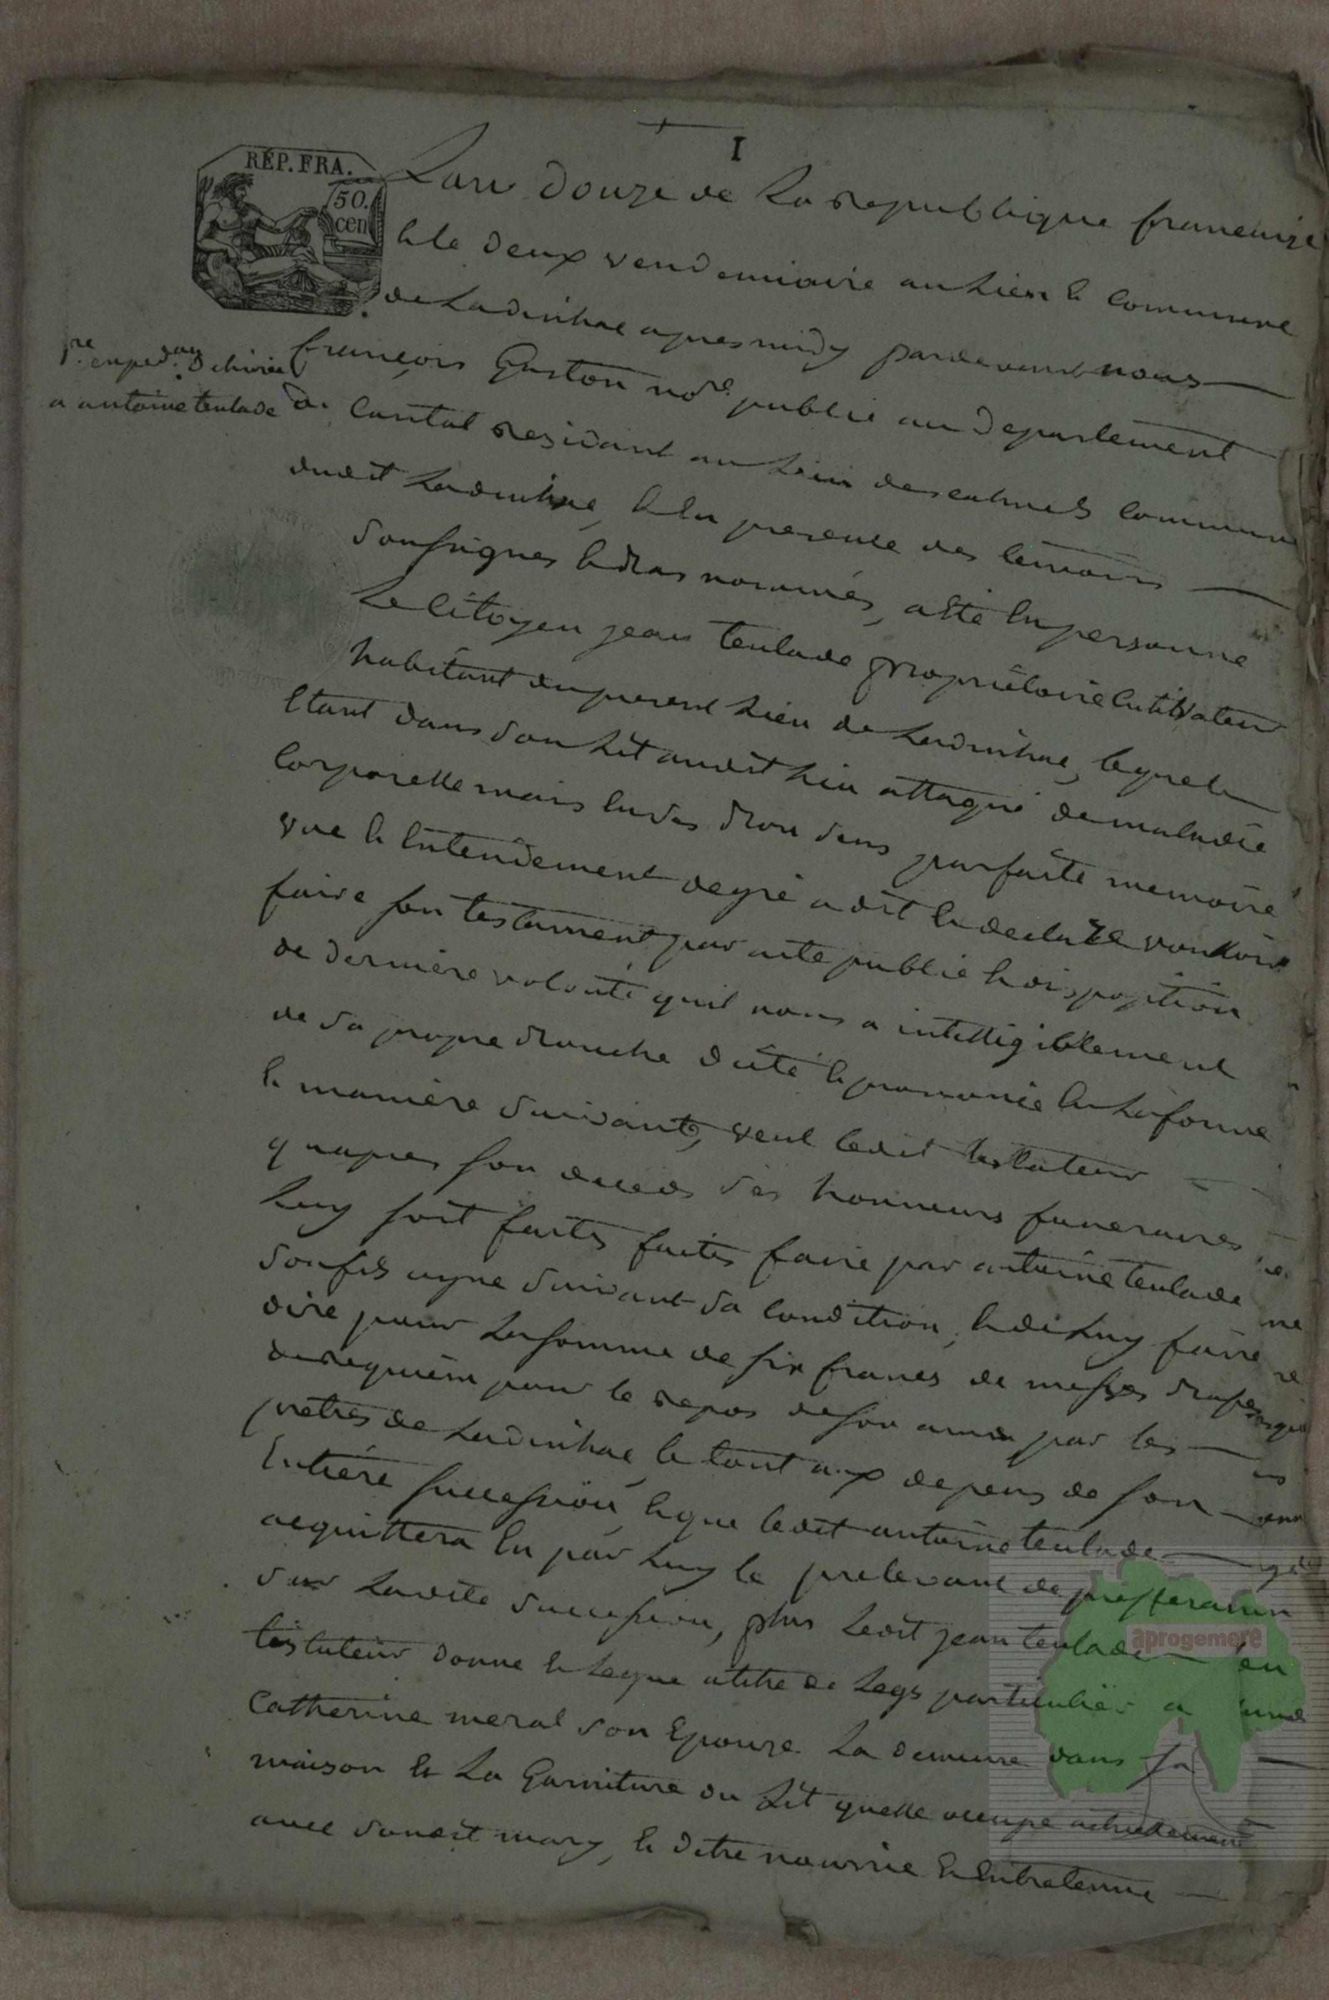 I
RÉP. FRA.
50.
cen
Lan douze de La republique francaise
& le deux vendemiaire au Lieu & commune
de Ladinhac apres midy pardevant nous
françois Gaston no.re public au departement
du Cantal residant au Lieu descalmels commune
dudit Ladinhac, & en presence des temoins
soussignes & bas nommés, a été en personne
Le Citoyen jean teulade propriétaire Cultivateur
habitant du present Lieu de Ladinhac, lequel
Etant dans son Lit audit Lieu attaqué de maladie
Corporelle mais en ses bon sens parfaite memoire
vue & Entendement de gré a dit & declaré vouloir
faire son testament par acte public & disposition
de derniere volonté quil nous a intelligiblement
de sa propre bouche dicté & prononcé en La forme
& maniere suivante, veut ledit testateur
quapres son deces ses honneurs funeraires
Luy soit faites faites faire par antoine teulade
son fils ayné suivant sa Condition, & de Luy faire
dire pour La somme de six francs de messes basses
de requiem pour le repos de son ame par les
pretres de Ladinhac le tout aux depens de son
Entiére succession, & que ledit antoine teulade
acquittera En par Luy le prelevant de prefferance
sur Ladite succession, plus Ledit jean teulade
testateur donne & Legue a titre de Legs particulier a
Catherine meral son Epouze La demeure dans sa
maison & La Garniture du Lit quelle occupe actuellement
avec sondit mary, & detre nourrie & Entretenue
1.re exped.on delivrée
a antoine teulade
aprogemere